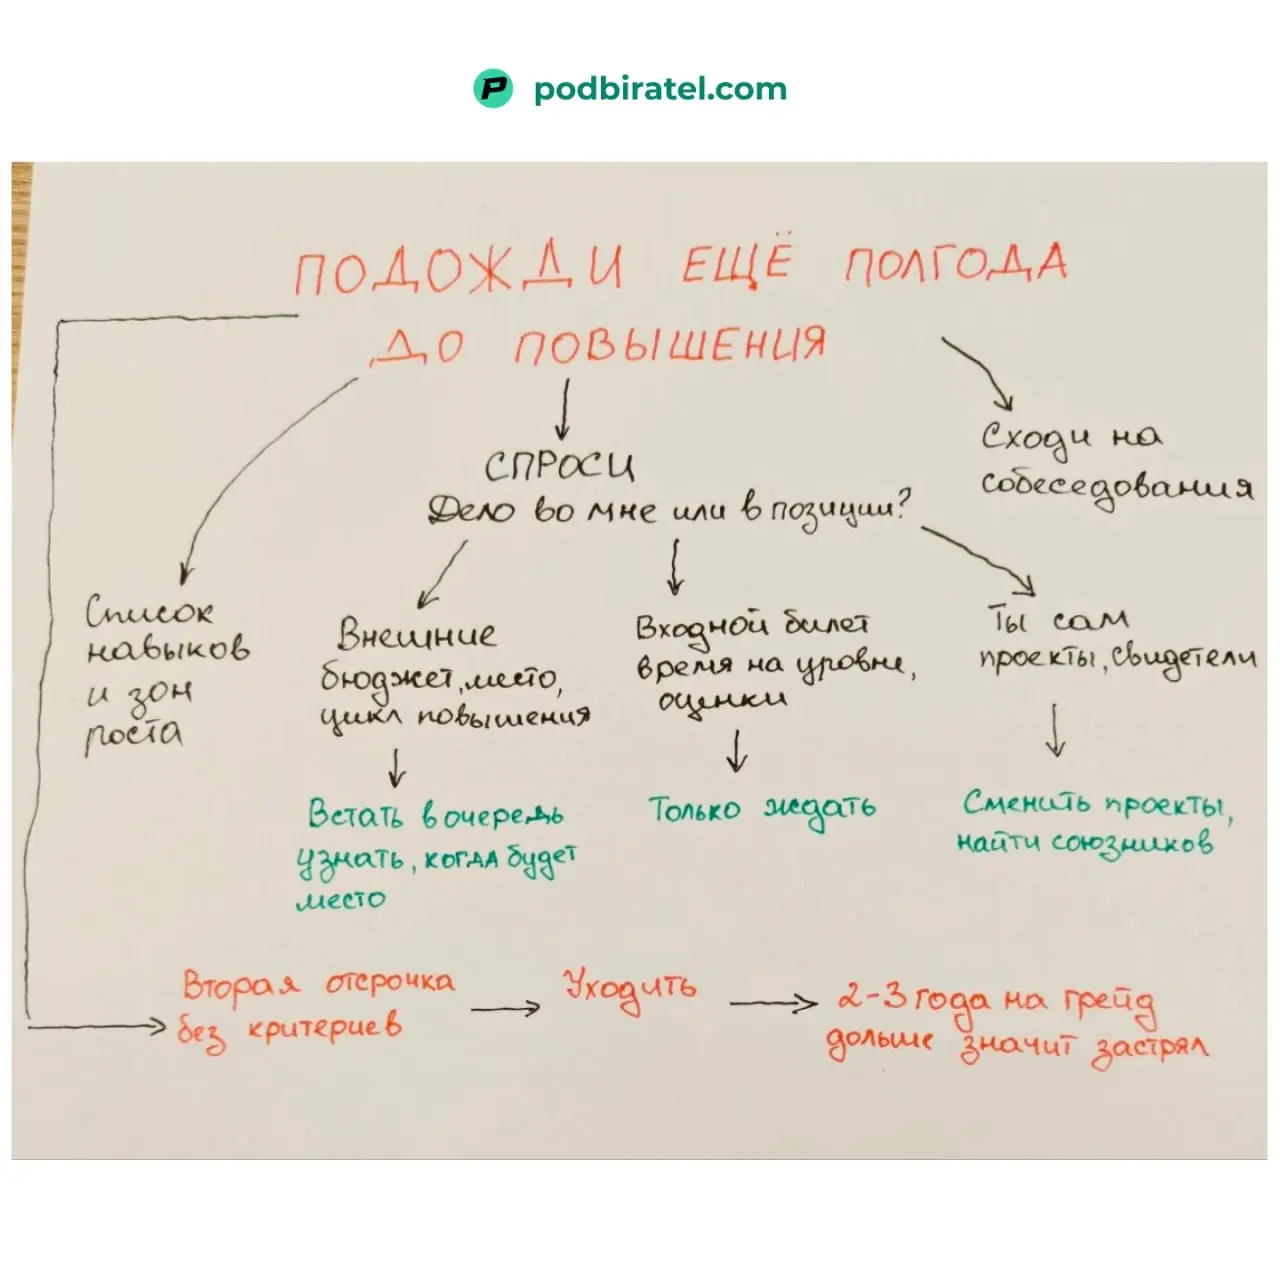 podbiratel.com
ПОДОЖДИ ЕЩЁ ПОЛГОДА
ДО ПОВЫШЕНИЯ
Сходи на
собеседования
СПРОСИ
Дело во мне или в позиции?
Список
навыков
и зон
роста
Внешние
бюджет, место,
цикл повышения
Входной билет
время на уровне,
оценки
Ты сам
проекты, свидетели
Встать в очередь
узнать, когда будет
место
Только ждать
Сменить проекты,
найти союзников
Вторая отсрочка
без критериев
Уходить
2-3 года на грейд
дольше значит застрял